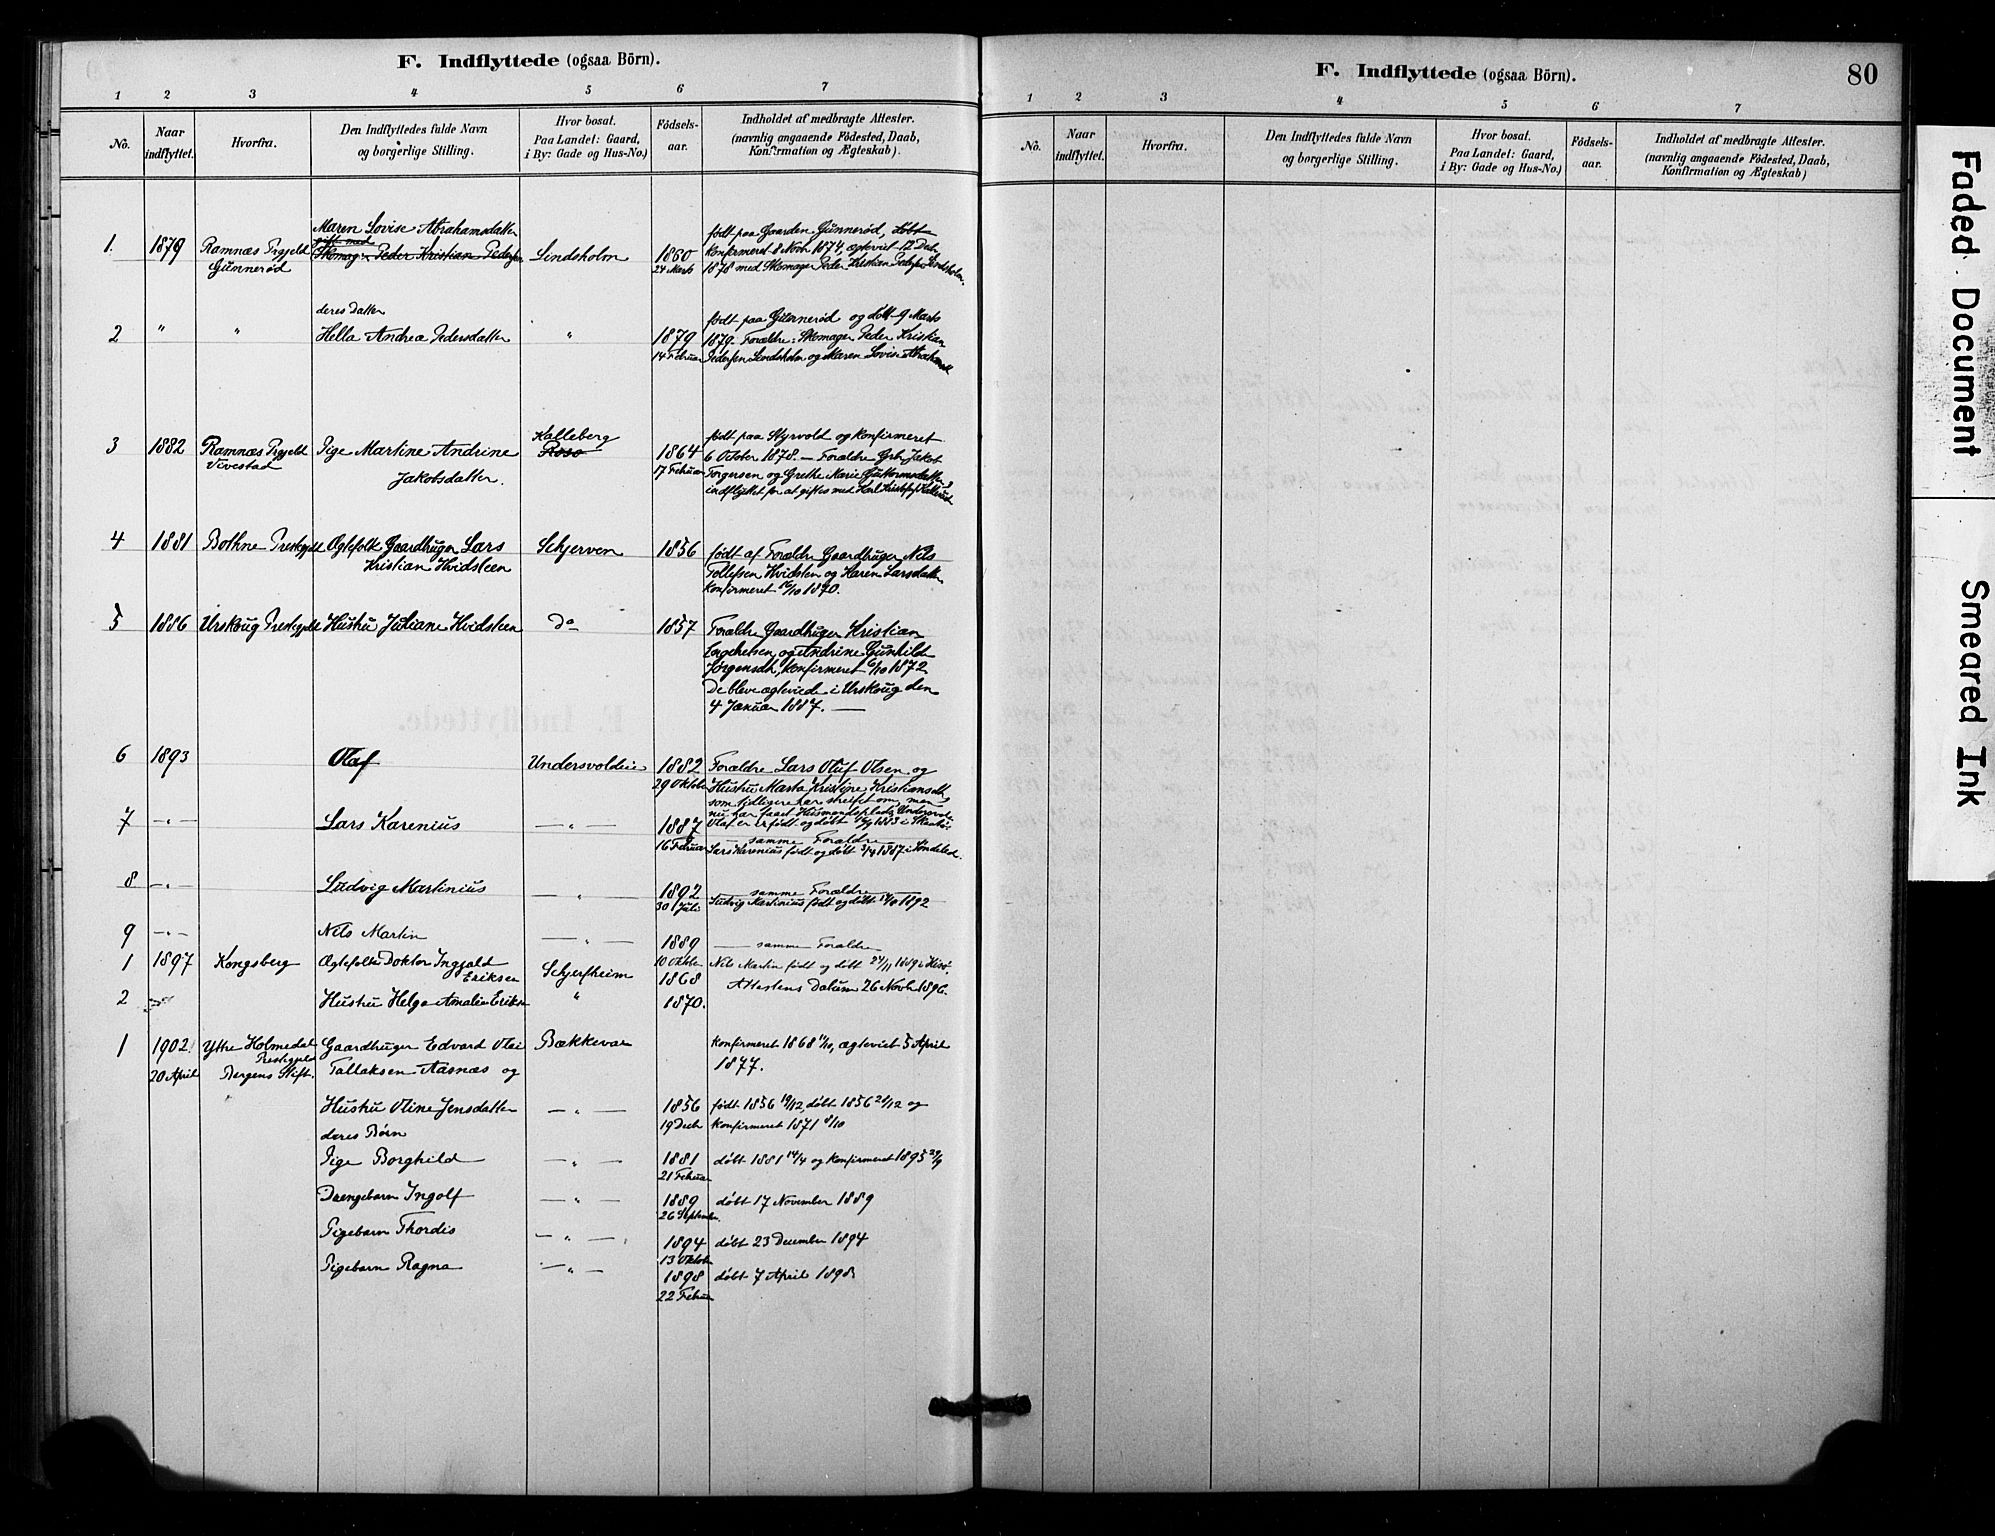 F. Indflyttede (ogsaa Börn).
1 2 3 4 5 6 7
No. Naar indflyttet. Hvorfra. Den Indflyttedes fulde Navn og borgerlige Stilling. Hvor bosat. Paa Landet: Gaard, i By: Gade og Hus-No.) Födsels-aar. Indholdet af medbragte Attester. (navnlig angaaende Födested, Daab, Konfirmation og Ægteskab).
Maren Lovise Abrahamsdatter
gift med
1. 1879 Ramnæs Prgjeld Skomag: Peder Kristian Pedersen Lindsholm 1860
Gunnerød 24 Marts
født paa Gaarden Gunnerød, døbt
konfirmeret 8 Novb 1874, ægteviet 12 Deb
1878 med Skomager Peder Kristian Pedersen Lindsholm.
deres Datter
2 " " Hella Andrea Pedersdatter " 1879
14 Februar
født paa Gunnerød og døbt 9 Marts
1879. Forældre: Skomager Peder Kristian
Pedersen Lindsholm og Maren Lovise Abrahamsd
3 1882 Ramnæs Prgjeld Pige Martine Andrine Kalleberg 1864
Vivestad Jakobsdatter. Røsø 17 Februar
født paa Styrvold og konfirmeret
6 October 1878. — Forældre Grb. Jakob
Torgersen og Grethe Marie Guttormsdatter,
indflyttet for at giftes med Karl
4 1881 Bothne Prestegjeld Ægtefolk Gaardbruger Lars Schjerven 1856
Kristian Hvidsteen
født af Forældre Gaardbruger Nils
Tollefsen Hvidsten og Karen Larsdatter
konfirmeret 16/10 1870.
5 1886 Urskoug Prestegjeld Hustru Juliane Hvidsteen do 1857
Forældre Gaardbruger Kristian
Engebretsen og Andrine Gunhilde
Jørgensdtr, konfirmeret 6/10 1872
De bleve ægteviede i Urskoug den
4 Januar 1887. —
6 1893 Olaf Undersvoldeie 1882
29 Oktober
Forældre Lars Oluf Olsen og
Hustru Marta Kristine Kristiansdtr
som tidligere har streifet om, men
nu har faaet Husmandsplads Undersvold.
Olaf er født og døbt 1883 i Skaatø.
7 — " — Lars Karenius — " — 1887
16 Februar
samme Forældre
Lars Karenius født og døbt 3/4 1887 i Søndeled.
8 — " — Ludvig Martinius — " — 1892
30 Juli
samme Forældre
Ludvig Martinius født og døbt 1892
9 — " — Nils Martin — " — 1889
10 Oktbr
samme Forældre
Nils Martin født og døbt 24/11 1889 i Hisø.
1 1897 Kongsberg Ægtefolk Doktor Ingjald Eriksen Schjerfheim 1868 Attestens Datum 26 Novb 1896.
2 Hustru Helga Amalie Eriksen " 1870.
1 1902. Ytre Holmedal Gaardbruger Edvard Olai Bækkevar konfirmeret 1868 11/10, ægteviet 5 April
20 April Prestegjeld Bergens Stift. Tallaksen Aasnæs og 1877.
Hustru Oline Jensdatter — " — 1856 født 1856 19/12, døbt 1856 26/12 og
deres Børn 19 Decb konfirmeret 1871 8/10
Pige Borghild — " — 1881 døbt 1881 14/4 og konfirmeret 1895 29/9
21 Februar
Drengebarn Ingolf — " — 1889 døbt 17 November 1889
26 September.
Pigebarn Thordis — " — 1894 døbt 23 December 1894
13 Oktob
Pigebarn Ragna — " — 1898 døbt 7 April 1898.
22 Februar
F. Indflyttede (ogsaa Börn). 80
1 2 3 4 5 6 7
No. Naar indflyttet. Hvorfra. Den Indflyttedes fulde Navn og borgerlige Stilling. Hvor bosat. Paa Landet: Gaard, i By: Gade og Hus-No.) Födsels-aar. Indholdet af medbragte Attester. (navnlig angaaende Födested, Daab, Konfirmation og Ægteskab)
Faded Document
Smeared Ink